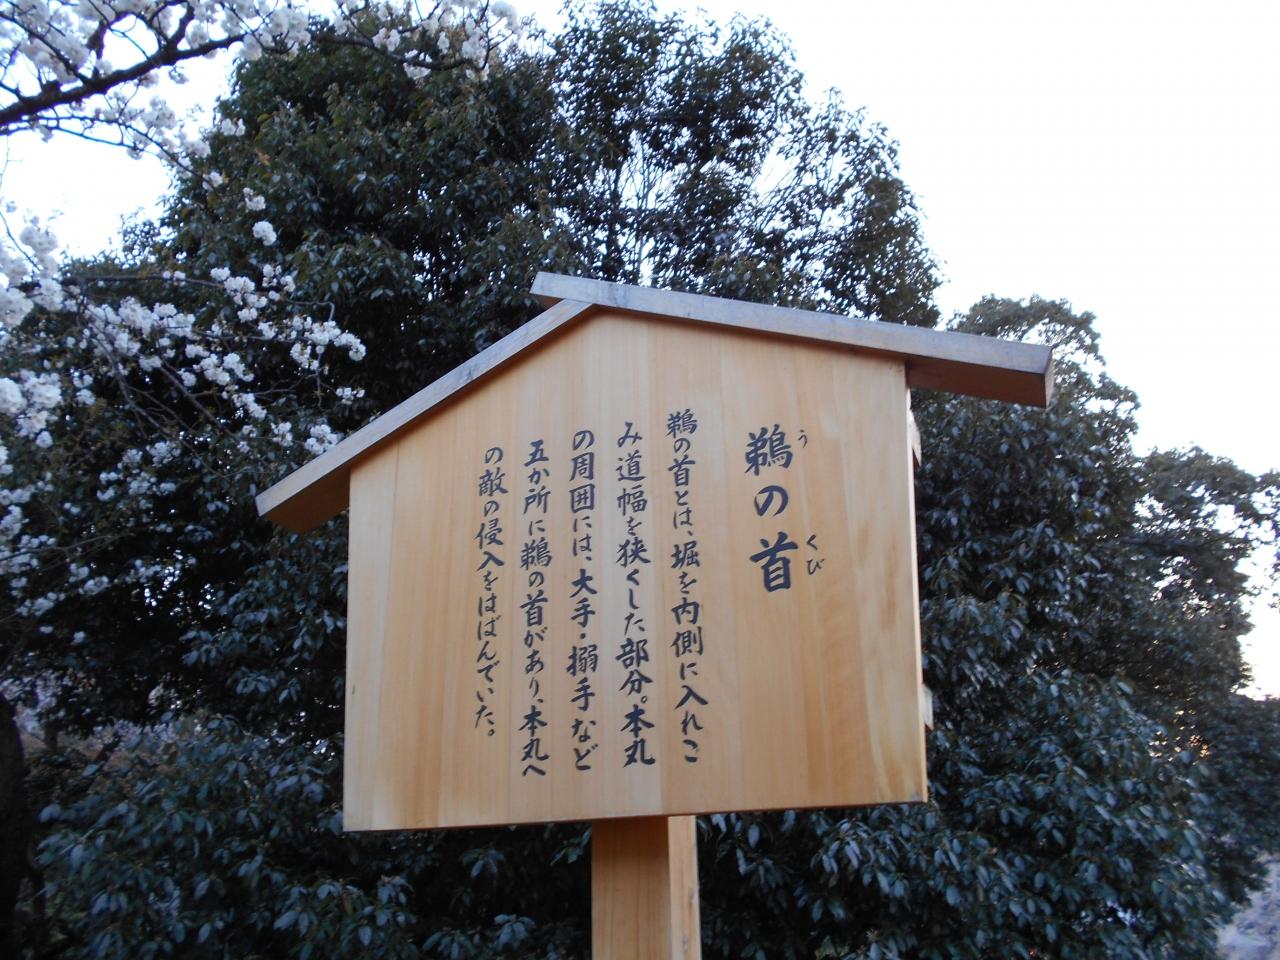 鵜の首
うくび
鵜の首とは、堀を内側に入れこ
み道幅を狭くした部分。本丸
の周囲には、大手・搦手など
五か所に鵜の首があり、本丸へ
の敵の侵入をはばんでいた。